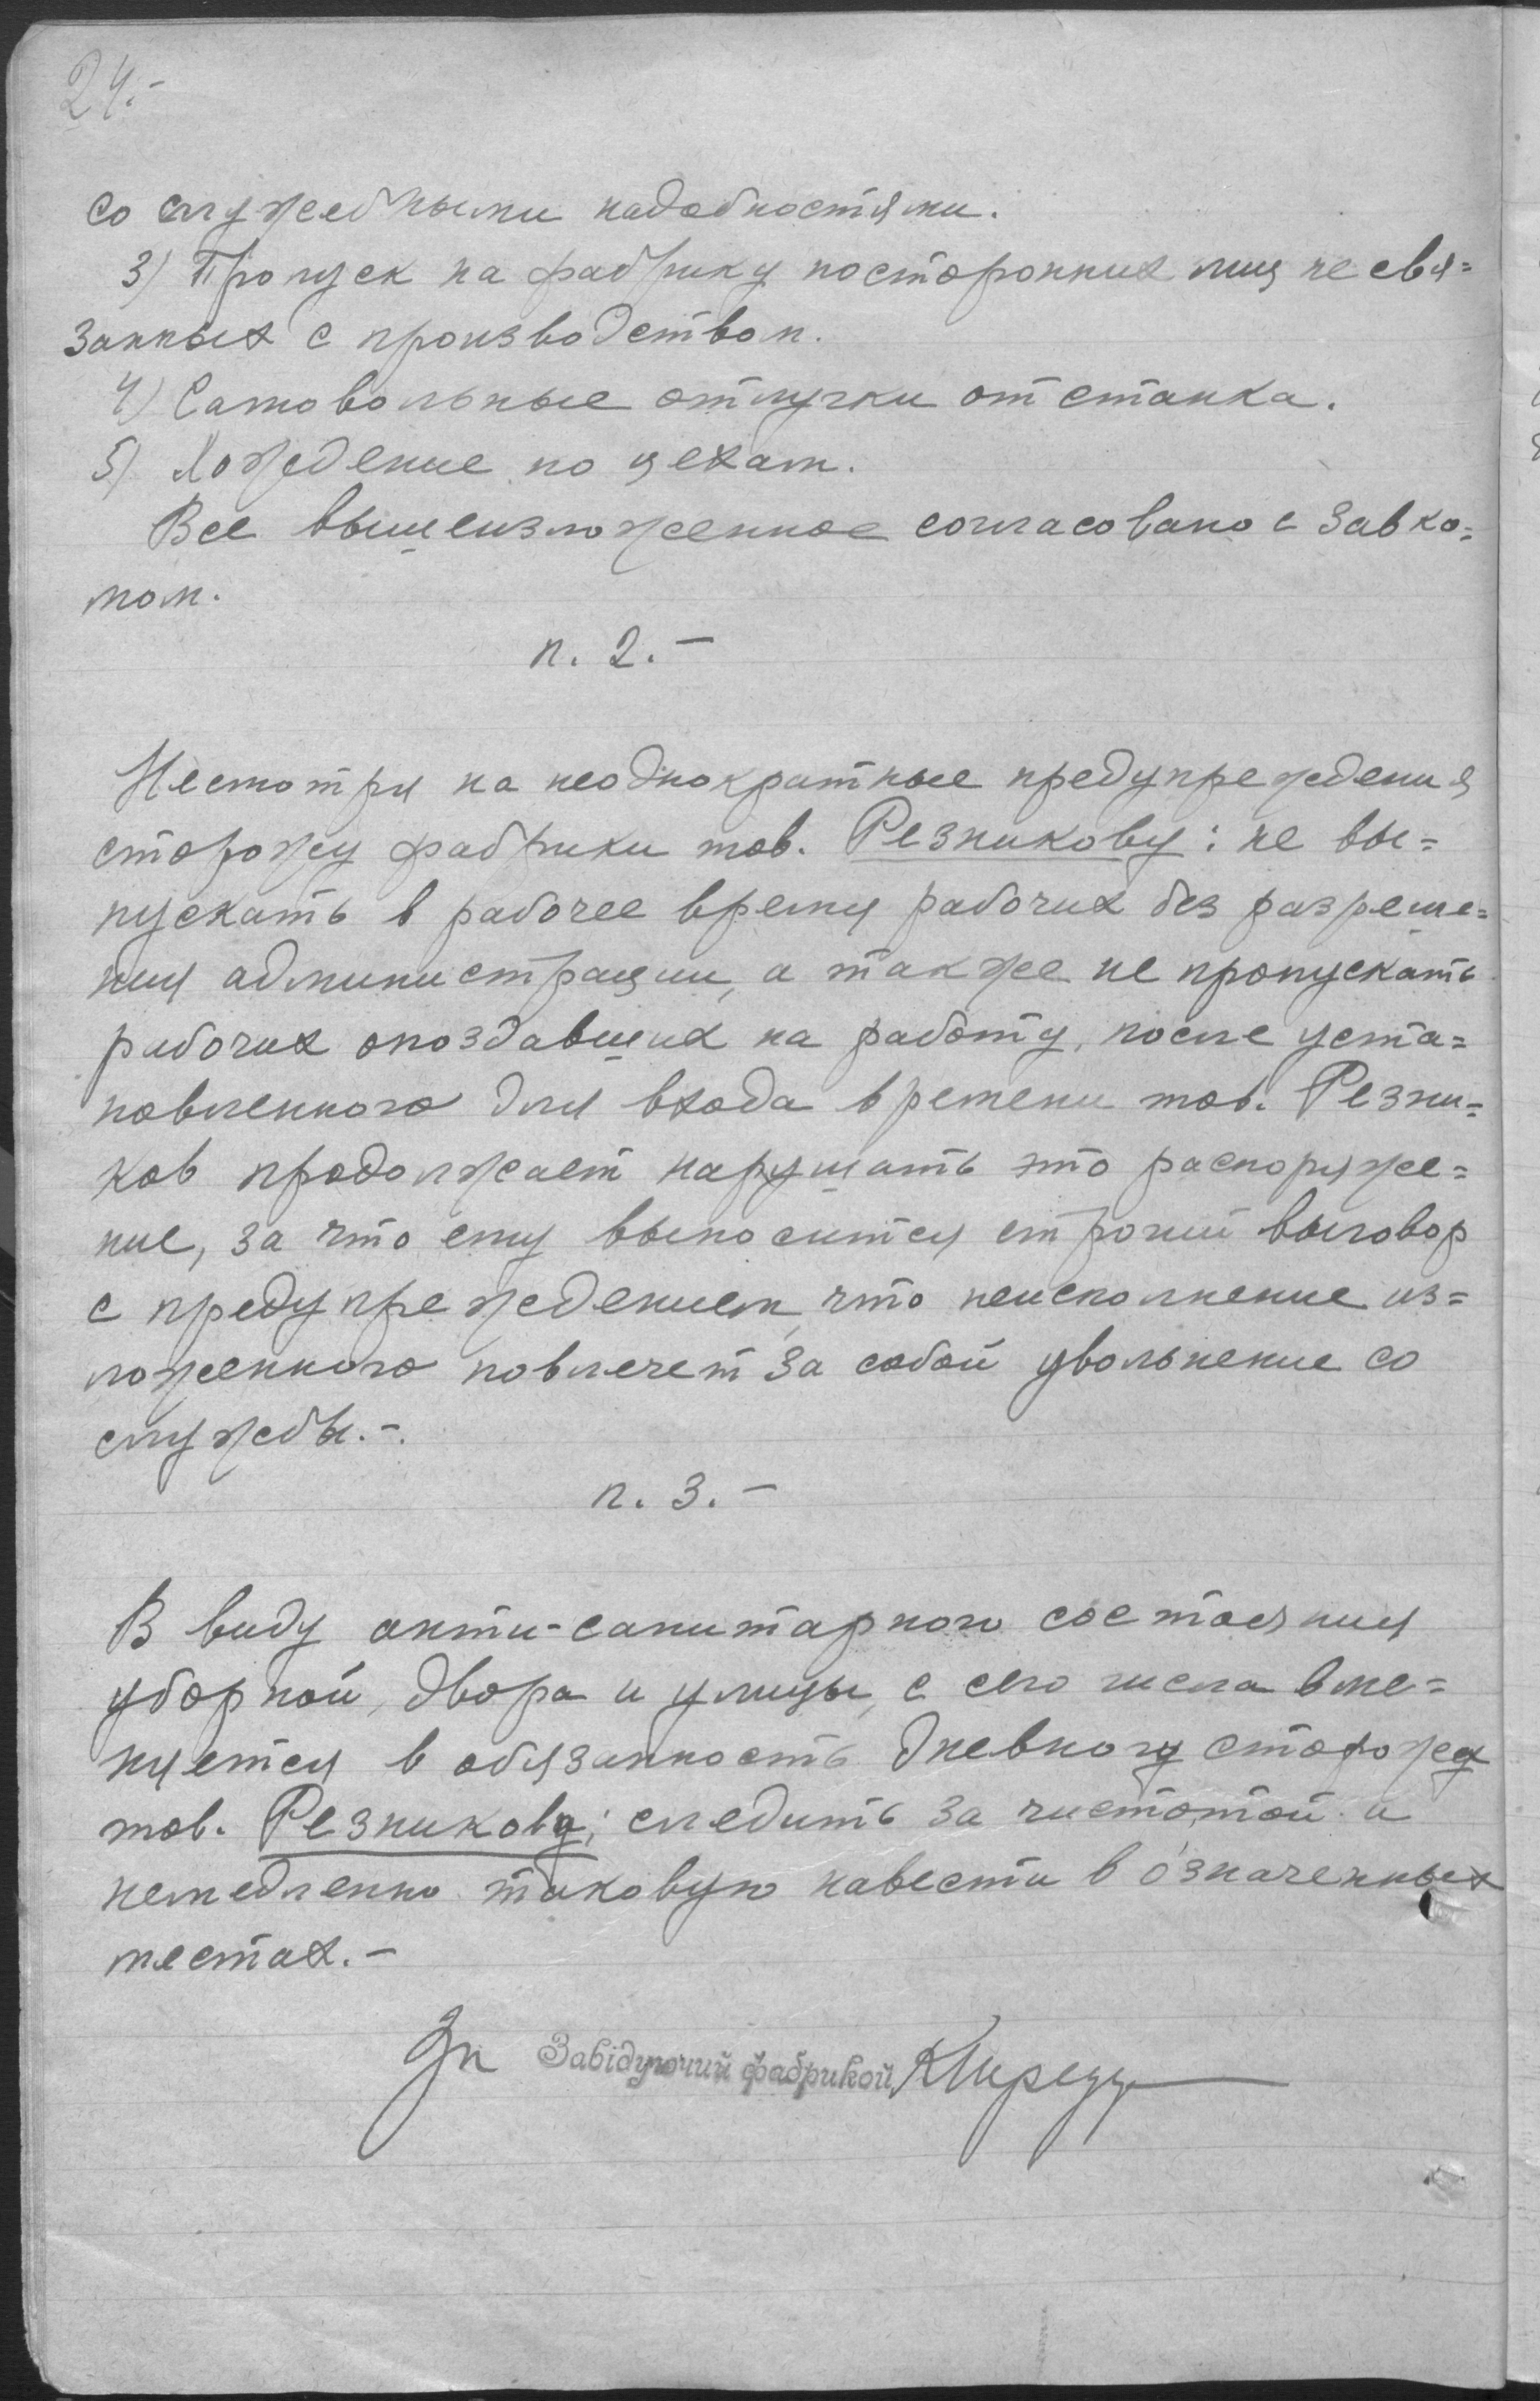 24.-
со служебными надобностями.
3) Пропуск на фабрику посторонних лиц не свя=
занных с производством.
4) Самовольные отлучки от станка.
5) Хождение по цехам.
Все вышеизложенное согласовано с Завко=
мом.
п. 2.-
Несмотря на неоднократные предупреждения
сторожу фабрики тов. Резникову: не вы=
пускать в рабочее время рабочих без разреше=
ния администрации, а также не пропускать
рабочих опоздавших на работу, после уста=
новленного для входа времени тов. Резни=
ков продолжает нарушать это распоряже=
ние, за что ему выносится строгий выговор
с предупреждением, что неисполнение из=
ложенного повлечет за собой увольнение со
службы.-.
п. 3.-
В виду анти-санитарного состояния
уборной, двора и улицы, с сего числа вме=
няется в обязанность дневному сторожу
тов. Резникову; следить за чистотой и
немедленно таковую навести в означенных
местах.-
Зп Завідуючий фабрикой